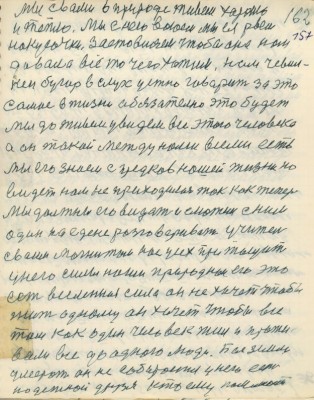 Мы своим в природе живем холодно 162
и тепло. Мы с него всего мы ея рвем 157
на кусочки. Заставляем чтобы она нам
давала все то чего хотим, нам
бугор в слух устно говорит за это
самое в жизни обязательно это будет
мы доживем увидем все этого человека
а он такой между нами всеми есть
мы его знаем с предков нашей жизни но
видет нам не приходилося так как теперь
Мы должны его видать и с ним
один на едене разговаривать учител
своим магнитом нас усех притащит
у него силы наши природная его это
сот вселенная сила он не хочет чтобы
жит одному он хочет чтобы все
там как один человек жил и
вали все до одного люди. По земли
умерат он не собирается у него ест
надежный друзя кто ему поможет